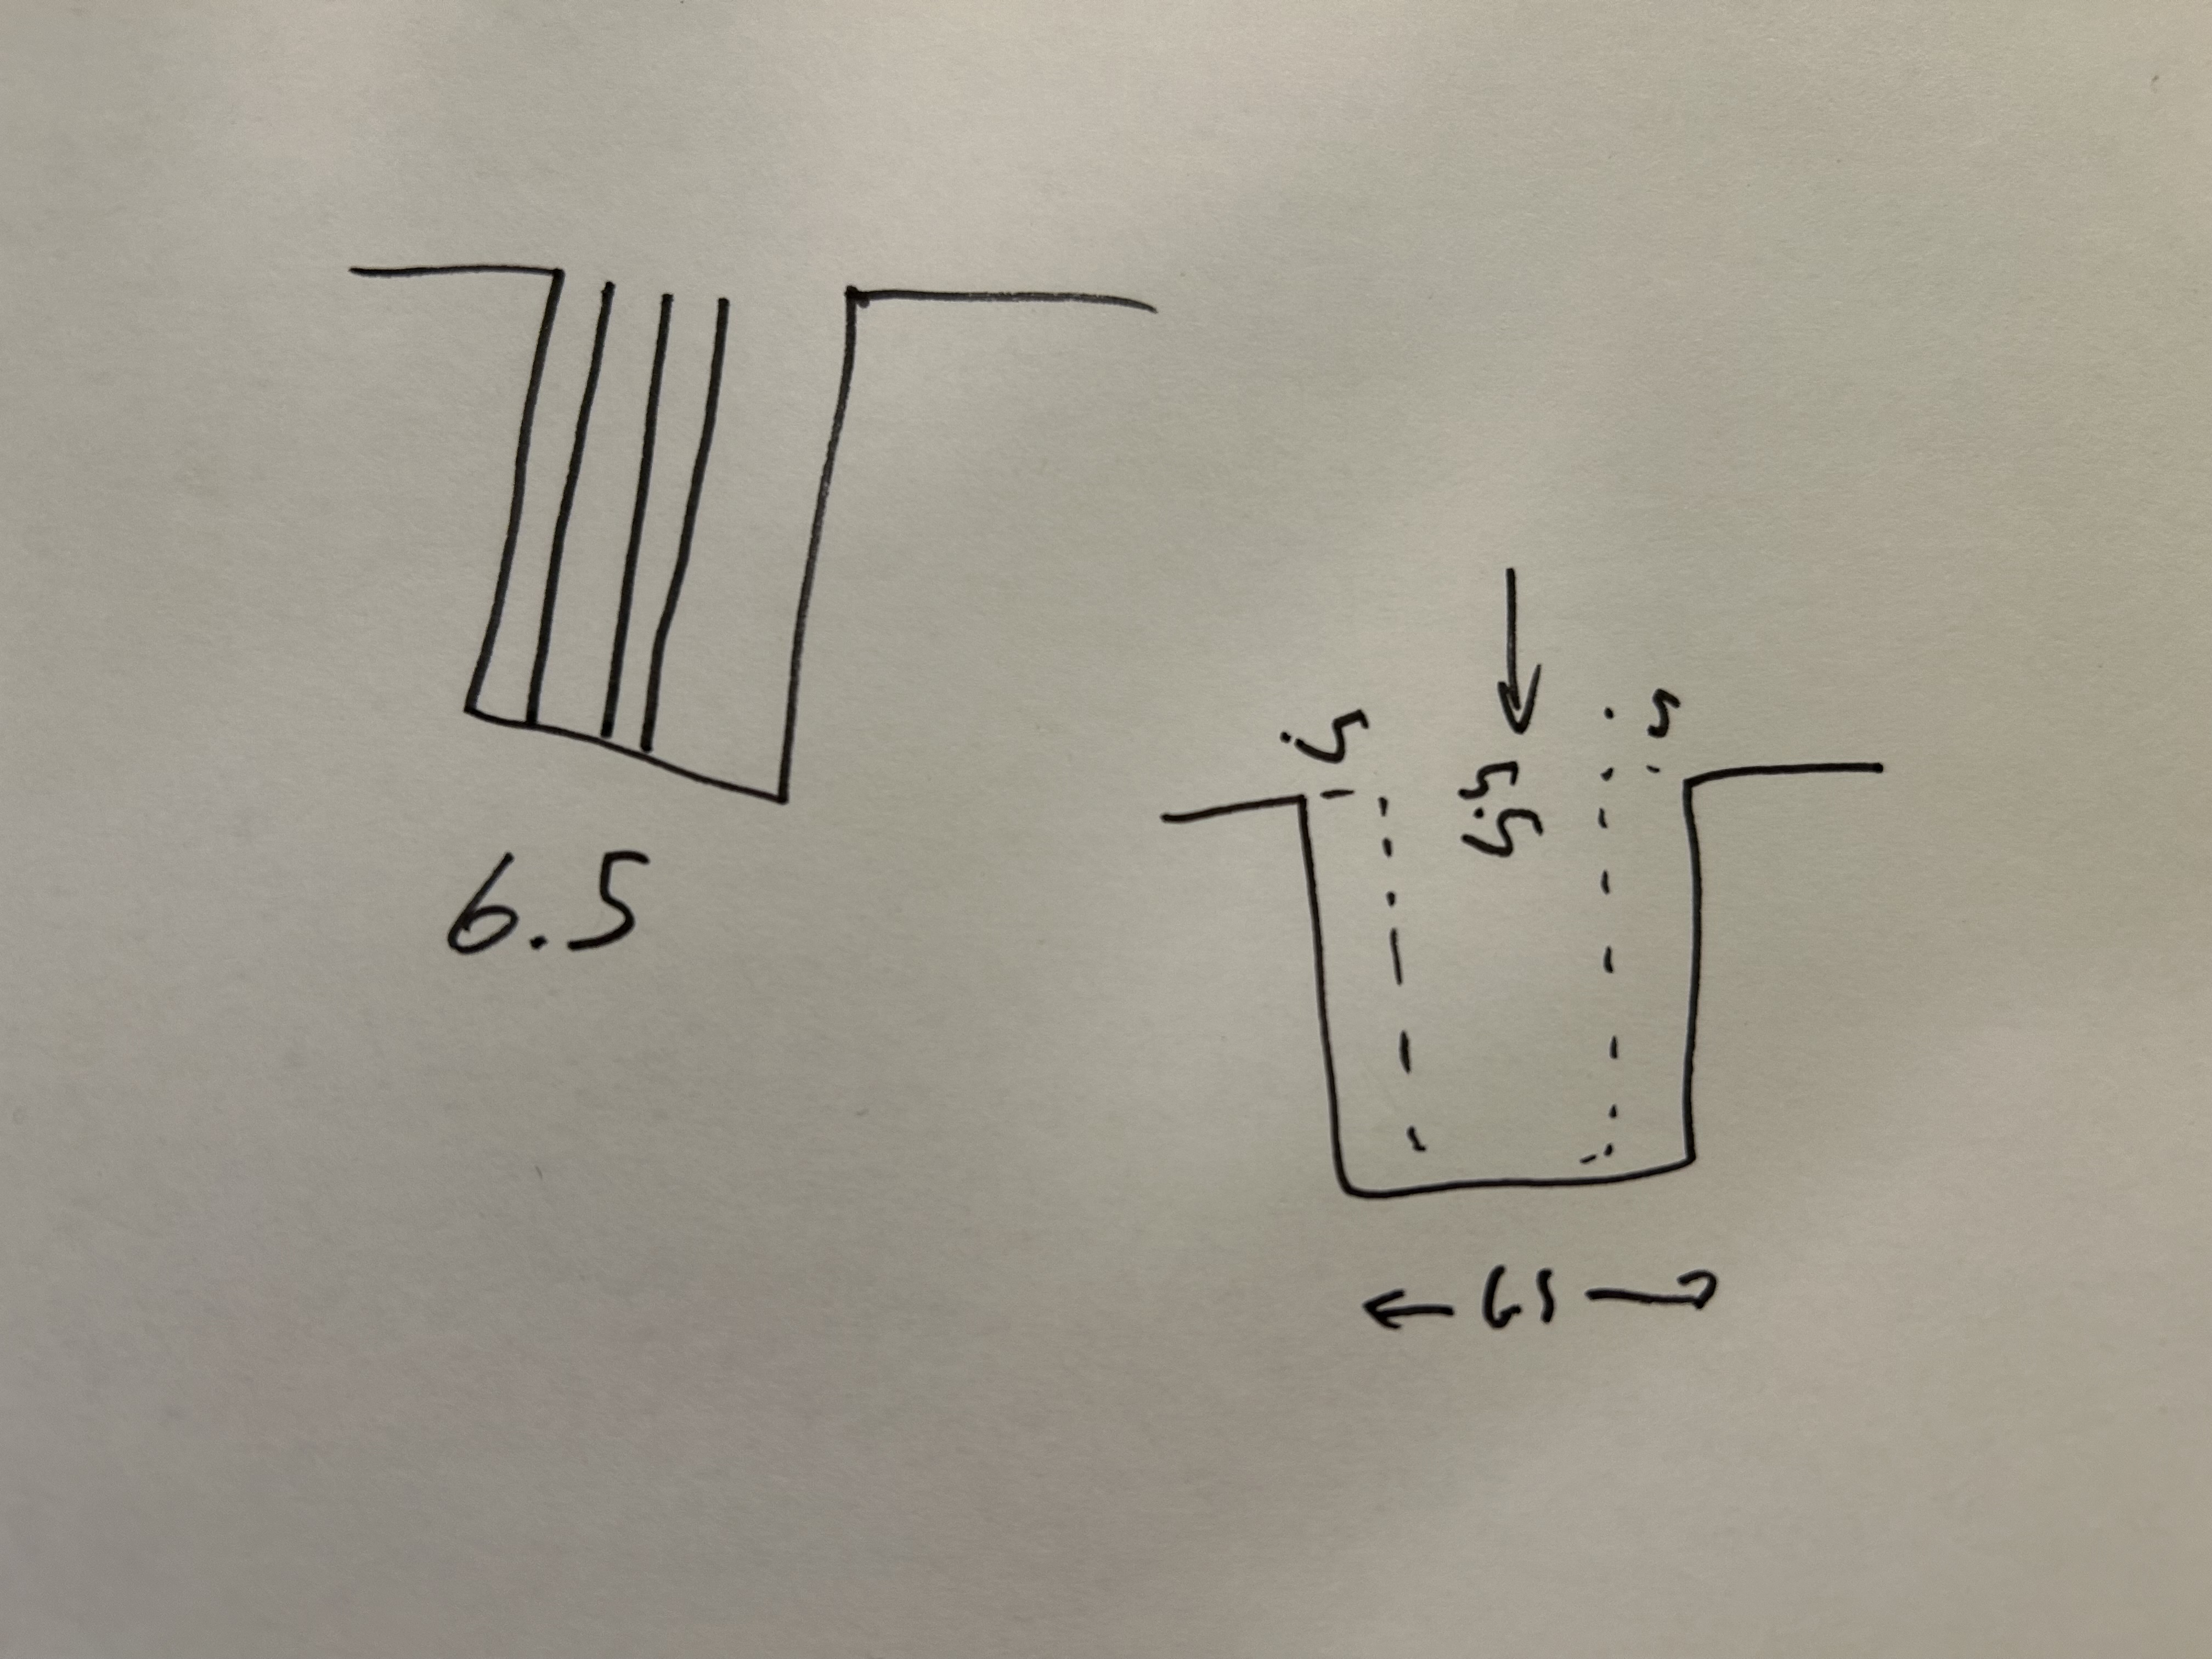 6.5
.5
5.5
.5
65